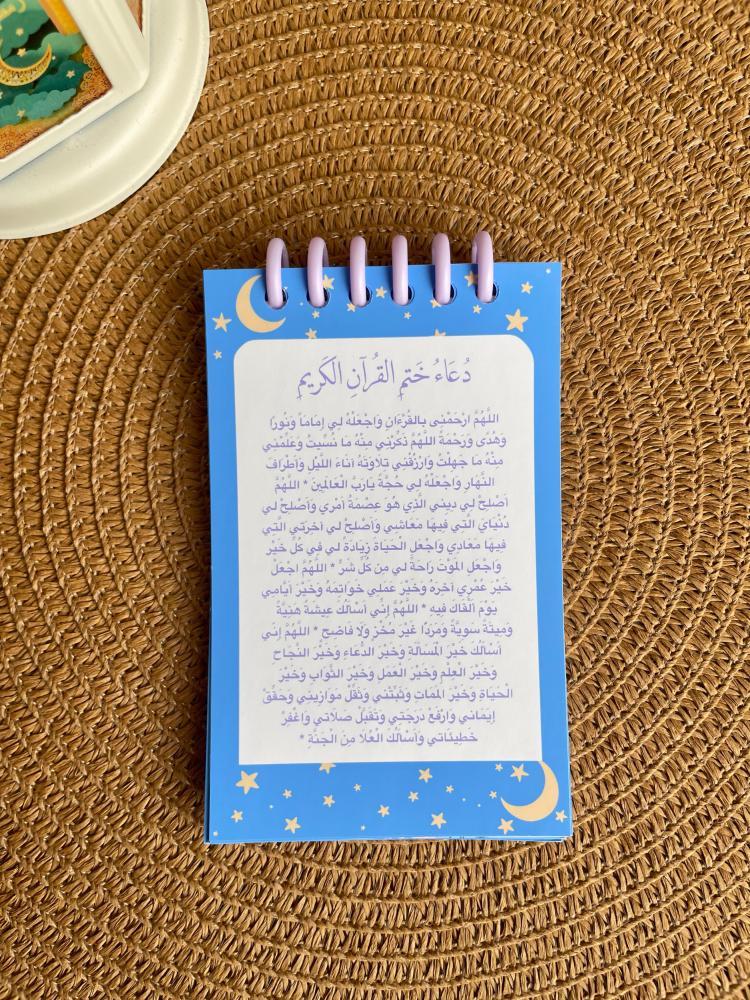 دُعَاءُ خَتمِ القُرآنِ الكَرِيمِ
اللَّهُمَّ ارْحَمْنِى بالقُرْءَانِ وَاجْعَلهُ لِي إِمَاماً وَنُورًا
وَهُدًى وَرَحْمَةً اللَّهُمَّ ذَكِّرْنِي مِنْهُ مَا نُسِّيتُ وَعَلِّمْنِي
مِنْهُ مَا جَهِلْتُ وَارْزُقْنِي تِلاَوَتَهُ آنَاءَ اللَّيْلِ وَأَطْرَافَ
النَّهَارِ وَاجْعَلْهُ لِي حُجَّةً يَارَبَّ العَالَمِينَ * اللَّهُمَّ
أَصْلِحْ لِي دِينِي الَّذِي هُوَ عِصْمَةُ أَمْرِي وَأَصْلِحْ لِي
دُنْيَايَ الَّتِي فِيهَا مَعَاشِي وَأَصْلِحْ لِي آخِرَتِي الَّتِي
فِيهَا مَعَادِي وَاجْعَلِ الْحَيَاةَ زِيَادَةً لِي فِي كُلِّ خَيْرٍ
وَاجْعَلِ المَوْتَ رَاحَةً لِي مِن كُلِّ شَرٍّ * اللَّهُمَّ اجْعَلْ
خَيْرَ عُمْرِي آخِرَهُ وَخَيْرَ عَمَلِي خَوَاتِمَهُ وَخَيْرَ أَيَّامِي
يَوْمَ أَلْقَاكَ فِيهِ * اللَّهُمَّ إِنِّي أَسْأَلُكَ عِيشَةً هَنِيَّةً
وَمِيتَةً سَوِيَّةً وَمَرَدًّا غَيْرَ مُخْزٍ وَلا فَاضِحٍ * اللَّهُمَّ إِنِّي
أَسْأَلُكَ خَيْرَ المَسْأَلَةِ وَخَيْرَ الدُّعَاءِ وَخَيْرَ النَّجَاحِ
وَخَيْرَ العِلْمِ وَخَيْرَ العَمَلِ وَخَيْرَ الثَّوَابِ وَخَيْرَ
الْحَيَاةِ وَخَيْرَ المَمَاتِ وَثَبِّتْنِي وَثَقِّلْ مَوَازِينِي وَحَقِّقْ
إِيمَانِي وَارْفَعْ دَرَجَتِي وَتَقَبَّلْ صَلاَتِي وَاغْفِرْ
خَطِيئَاتِي وَأَسْأَلُكَ العُلَا مِنَ الْجَنَّةِ *